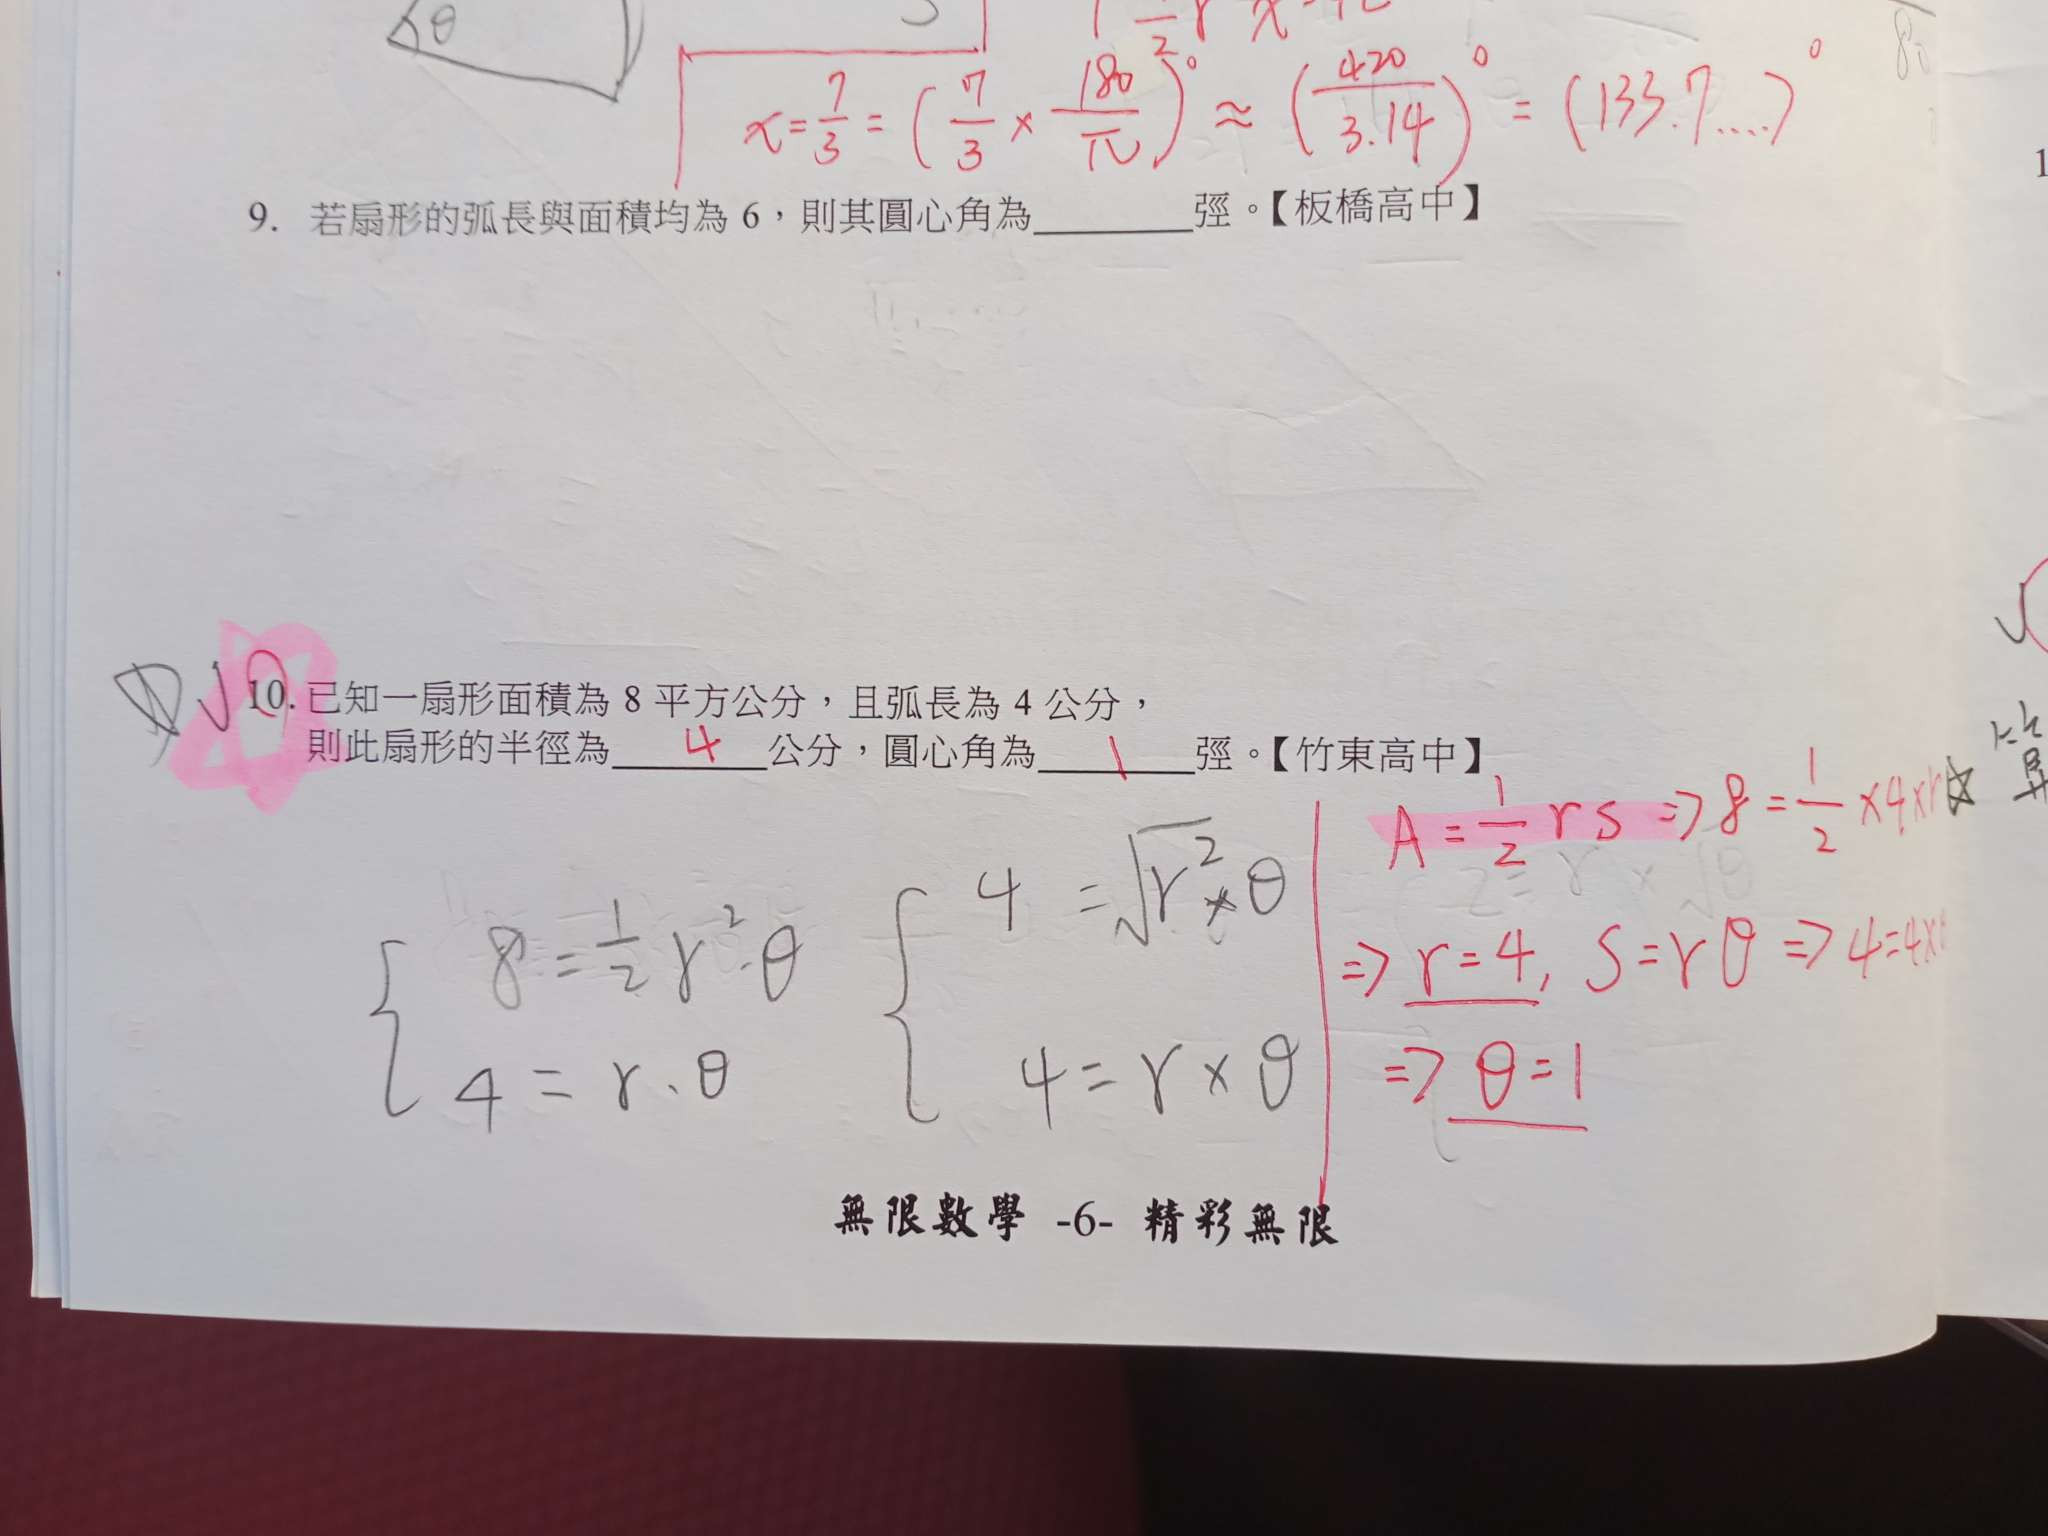 θ
x = 7/3 = (7/3 × 180/π)° ≈ (420/3.14)° = (133.7....)°
9. 若扇形的弧長與面積均為 6，則其圓心角為________弳。【板橋高中】
10. 已知一扇形面積為 8 平方公分，且弧長為 4 公分，
則此扇形的半徑為 4 公分，圓心角為 1 弳。【竹東高中】
8 = 1/2 r²·θ
4 = r·θ
4 = √r² × θ
4 = r × θ
A = 1/2 r s => 8 = 1/2 × 4 × r
=> r = 4, S = rθ => 4 = 4×
=> θ = 1
無限數學 -6- 精彩無限